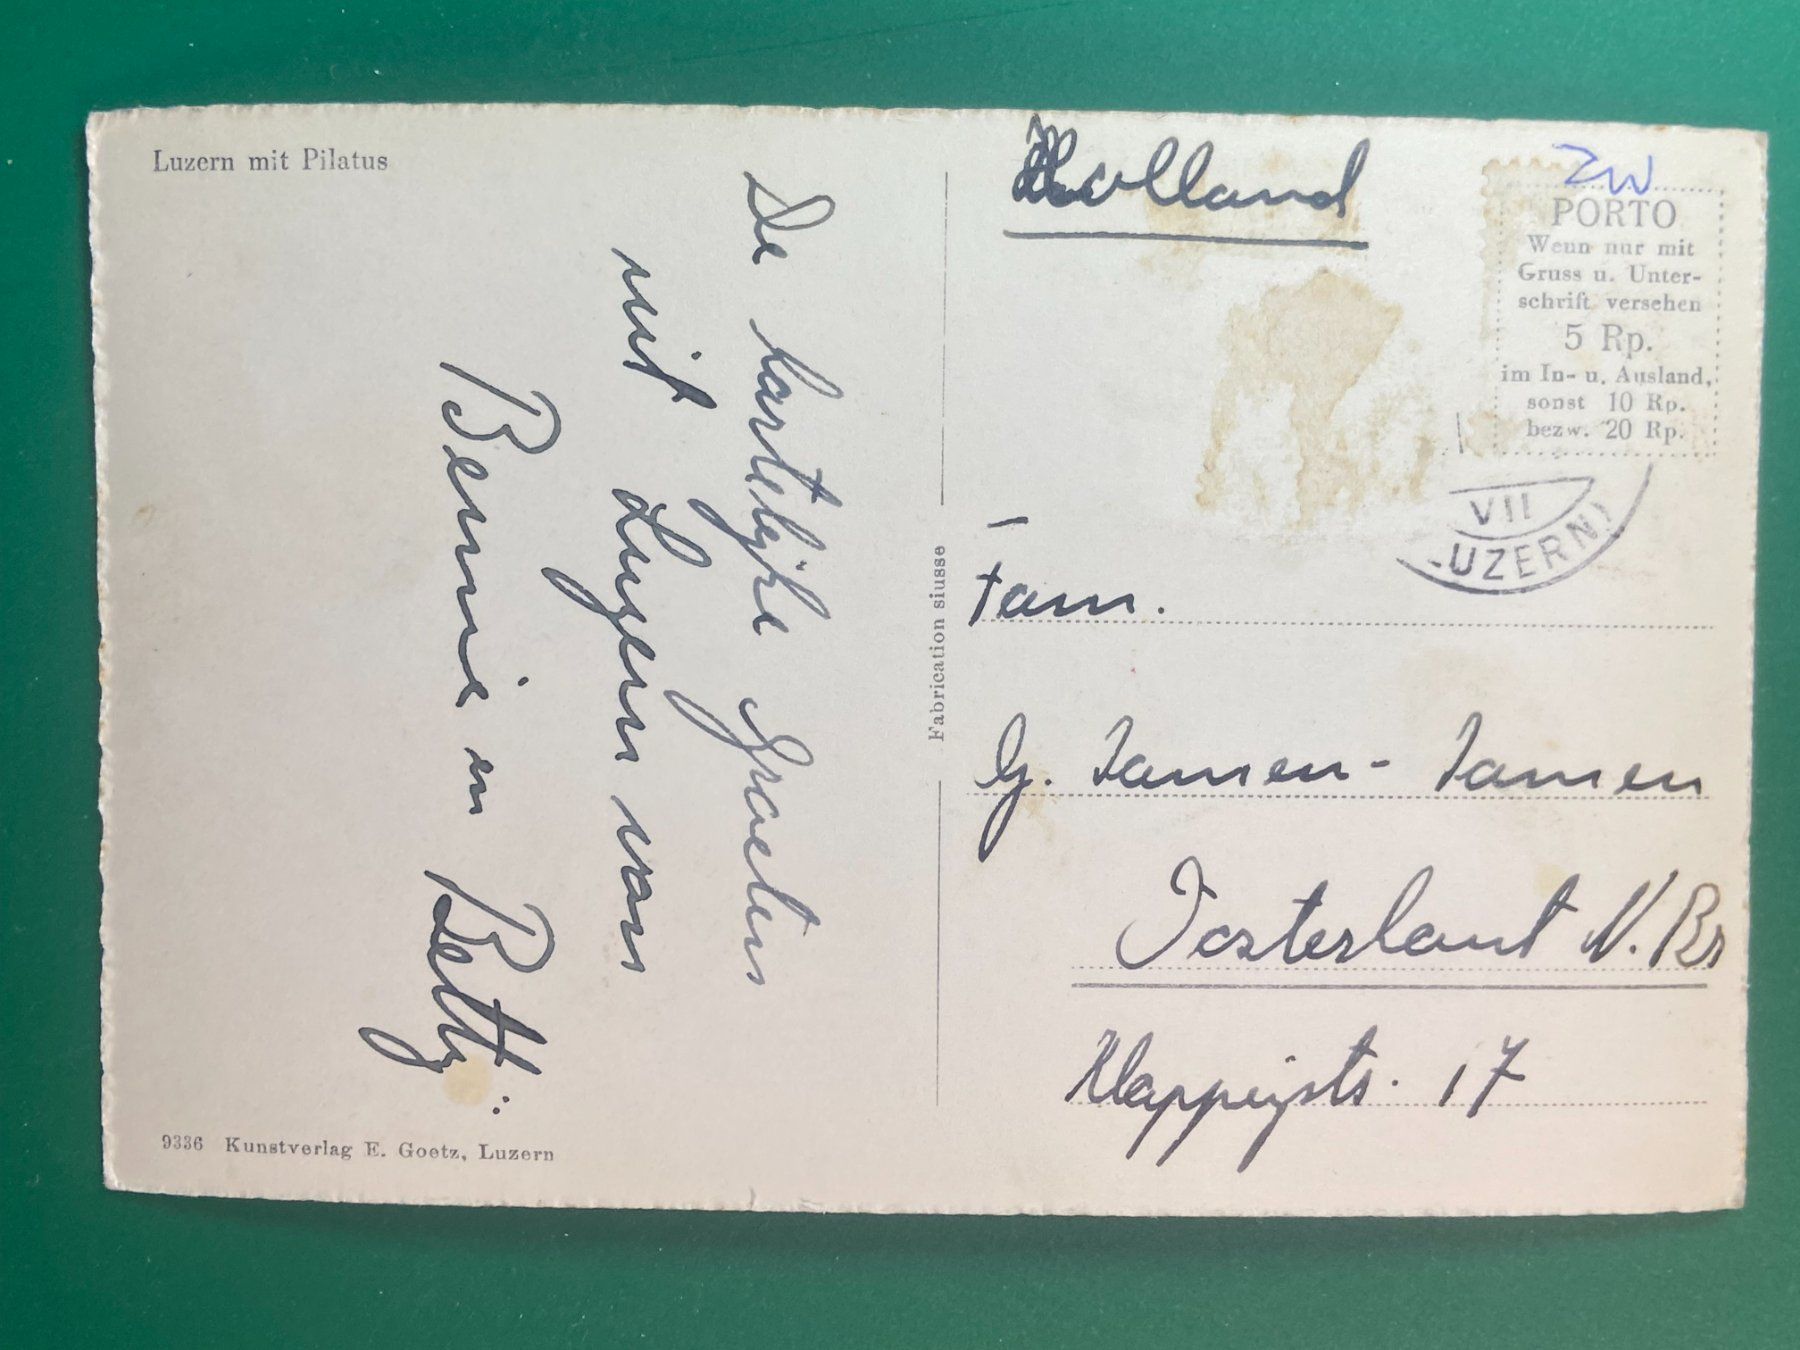 Luzern mit Pilatus
De hartelijke Groeten
uit Luzern van
Bennie en Betty
9336 Kunstverlag E. Goetz, Luzern
Fabrication siusse
Holland
ZW
PORTO
Wenn nur mit
Gruss u. Unter-
schrift versehen
5 Rp.
im In- u. Ausland,
sonst 10 Rp.
bezw. 20 Rp.
VII
LUZERN 1
Fam.
G. Jansen - Jansen
Oosterhout N. Br
Klappeijstr. 17